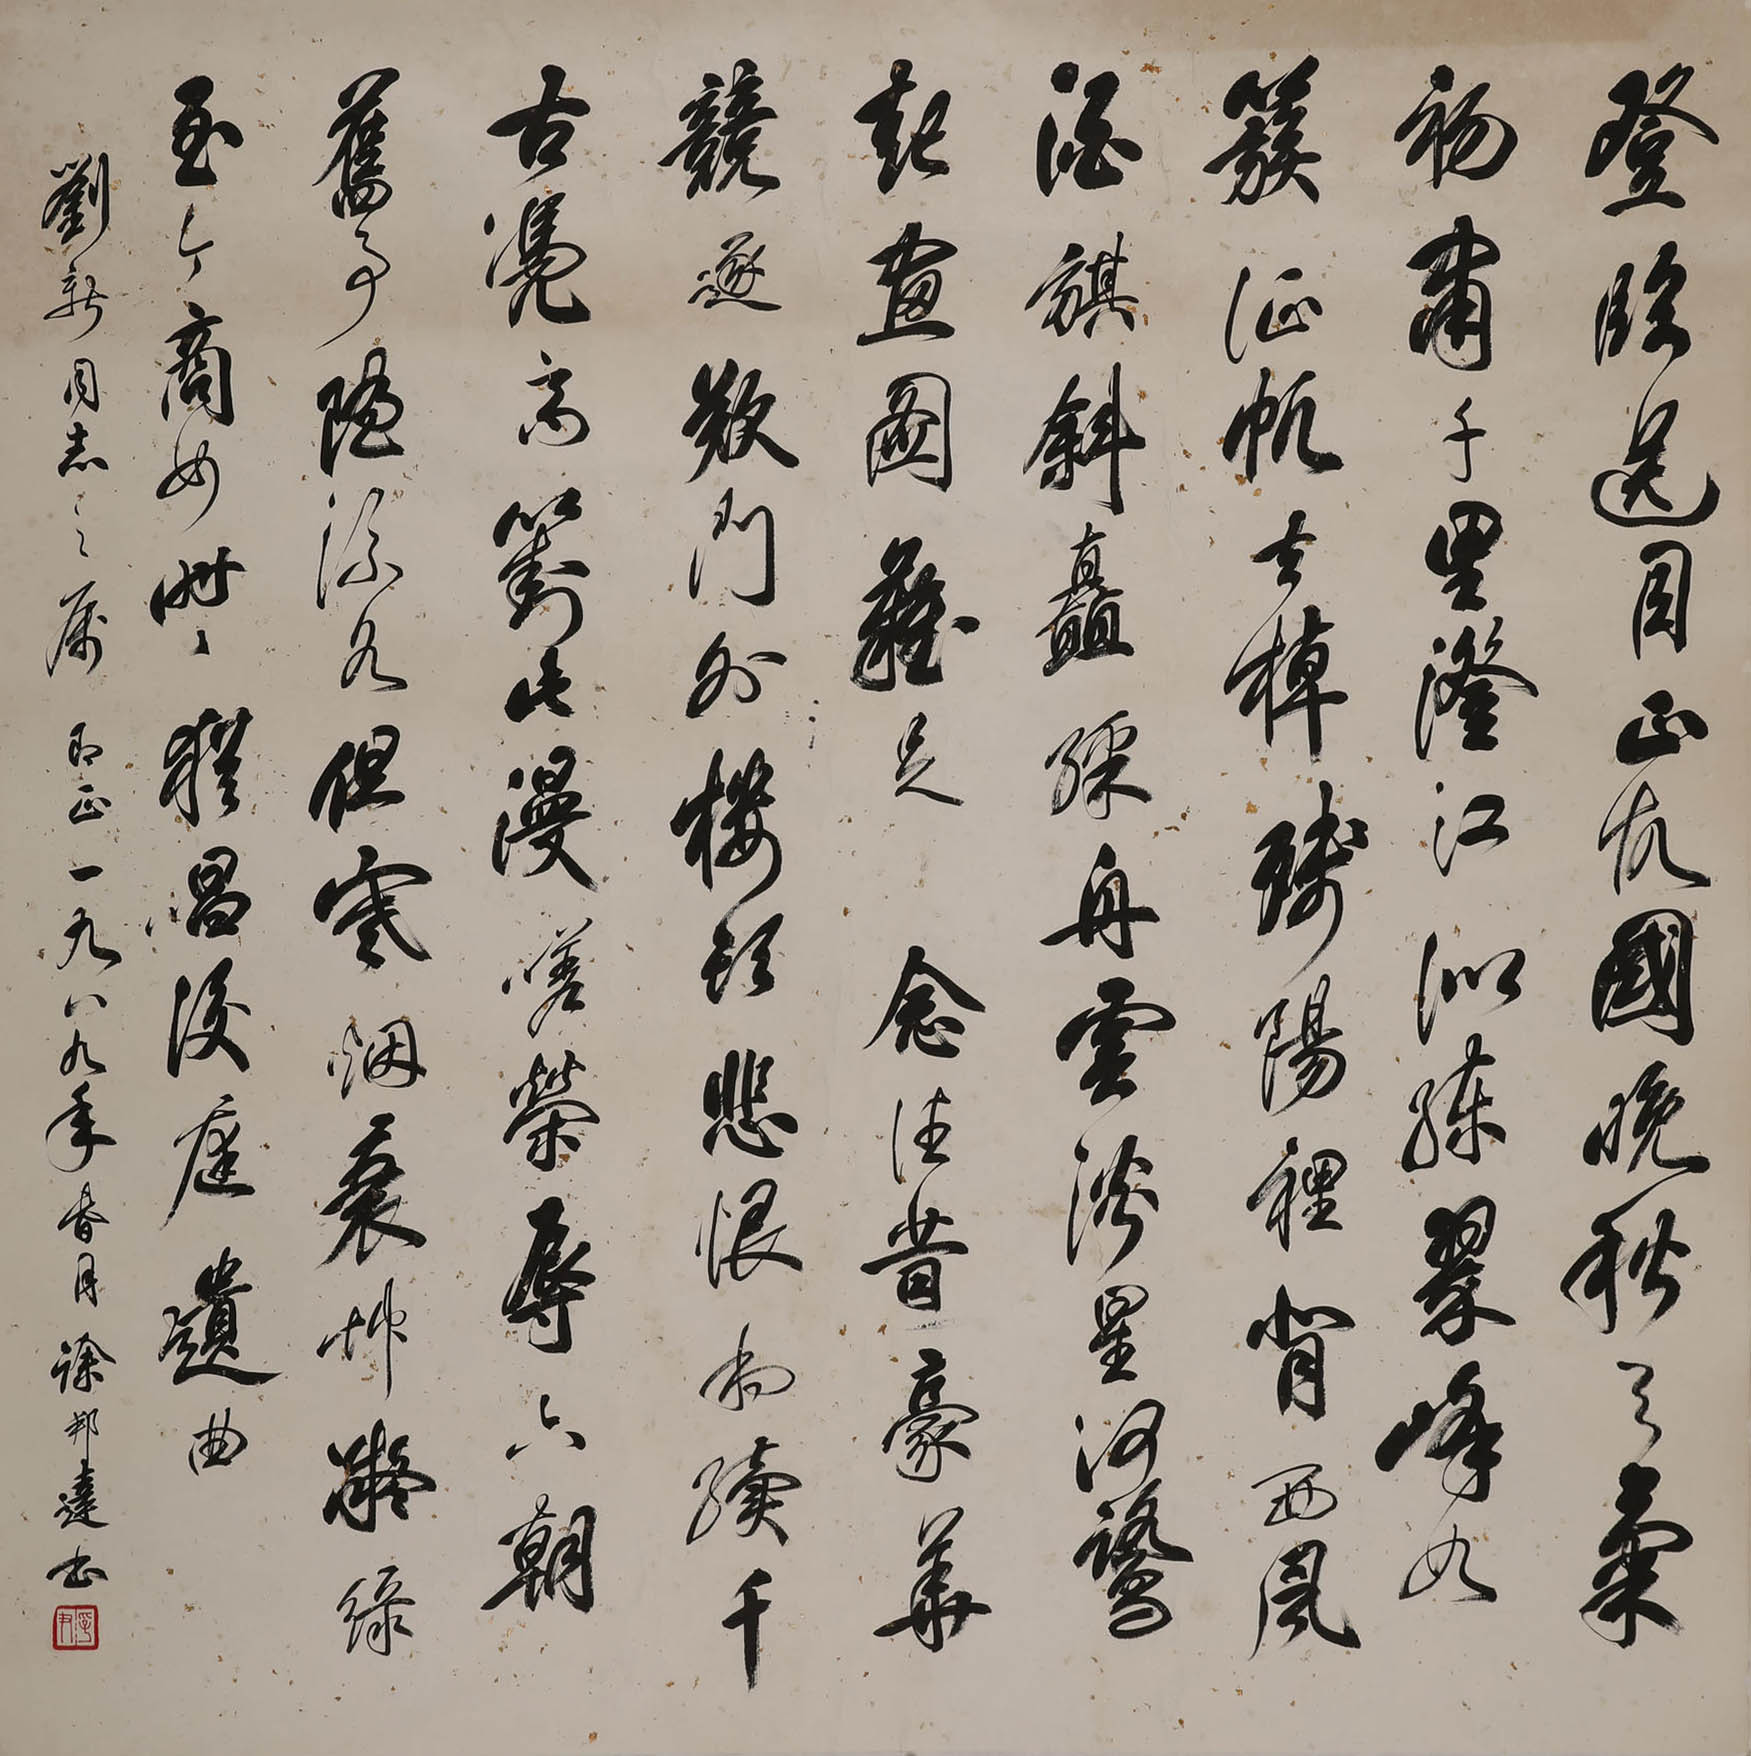 登臨送目正故國晚秋天氣
初肅千里澄江似練翠峰如
簇征帆去棹殘陽裡背西風
酒旗斜矗綵舟雲淡星河鷺
起畫圖難足念往昔豪華
競逐歎門外樓頭悲恨相續千
古憑高對此漫嗟榮辱六朝
舊事隨流水但寒烟衰草凝綠
至今商女時時猶唱後庭遺曲
劉新同志之屬即正一九八九年春月徐邦達書